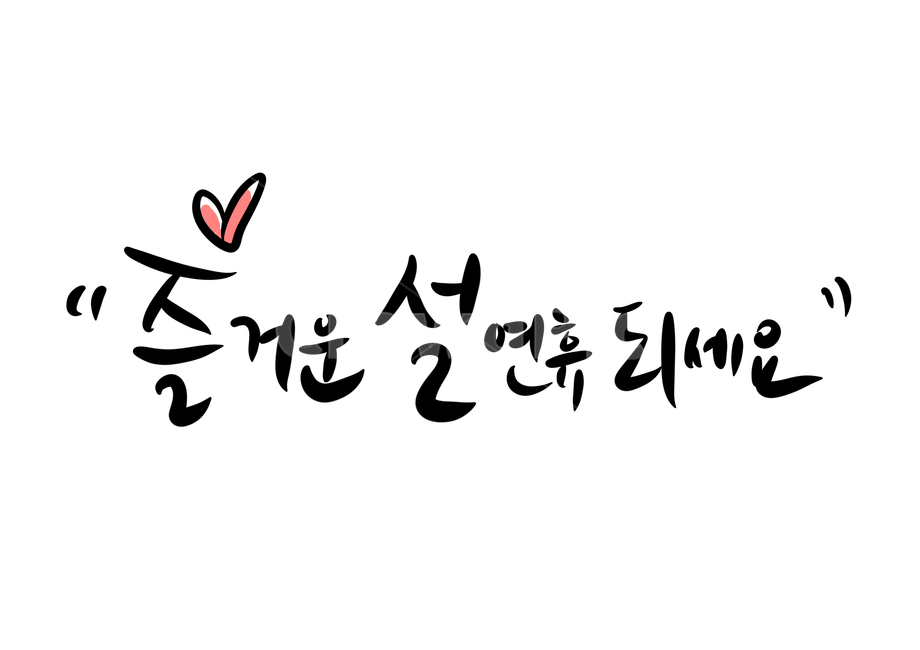 "즐거운 설 연휴 되세요"